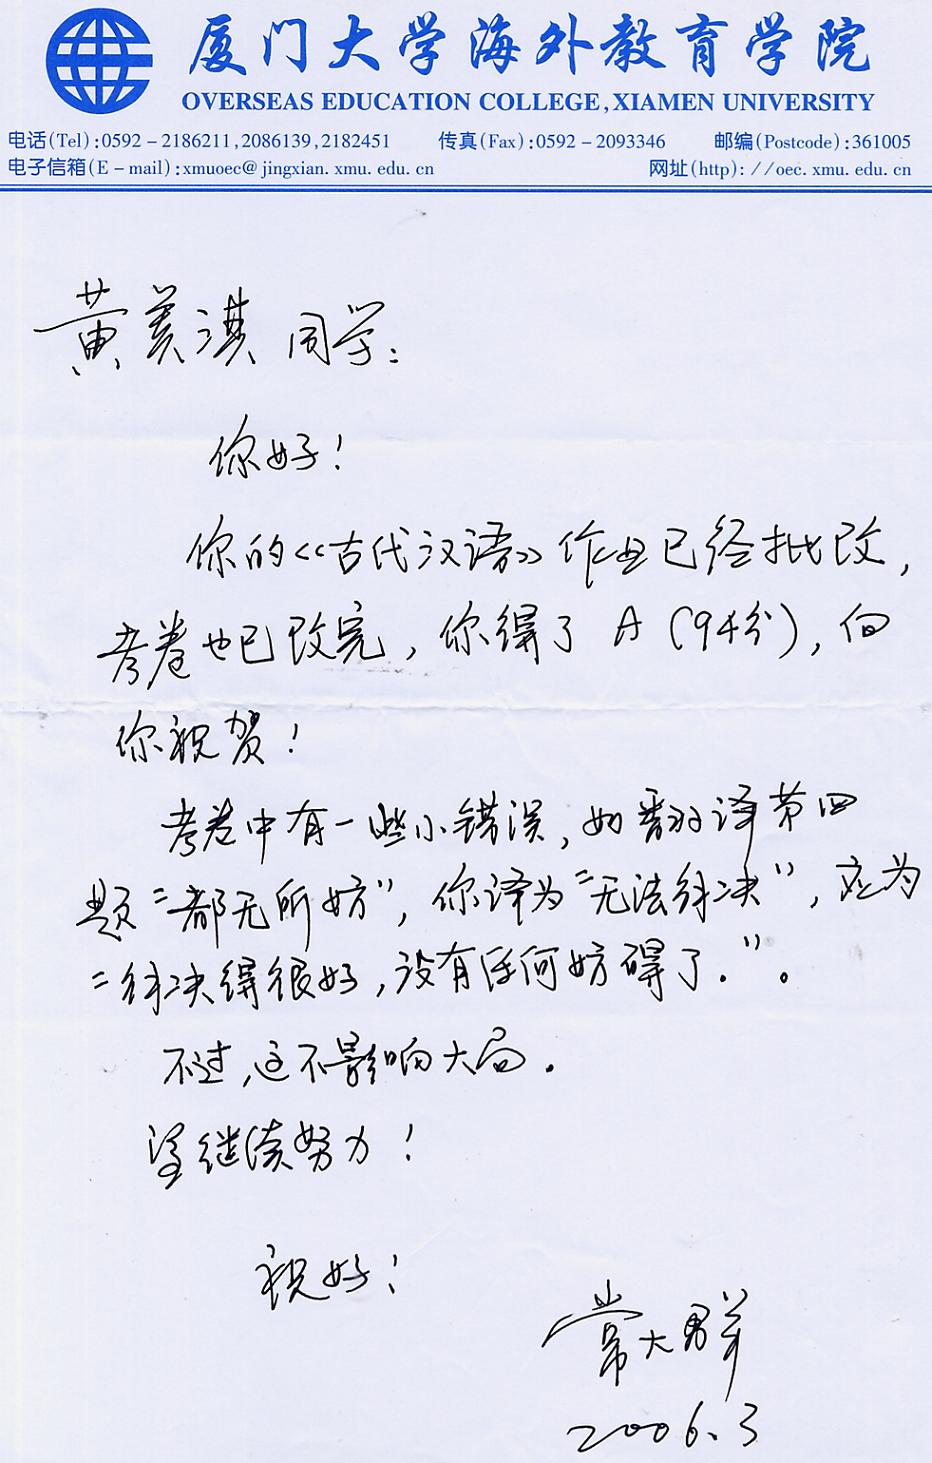 厦门大学海外教育学院
OVERSEAS EDUCATION COLLEGE, XIAMEN UNIVERSITY
电话(Tel):0592-2186211,2086139,2182451 传真(Fax):0592-2093346 邮编(Postcode):361005
电子信箱(E-mail):xmuoec@jingxian.xmu.edu.cn 网址(http)://oec.xmu.edu.cn
黄美淇同学:
你好!
你的《古代汉语》作业已经批改,
考卷也已改完,你得了A(94分),向
你祝贺!
考卷中有一些小错误,如翻译第四
题"都无所妨",你译为"无法解决",应为
"解决得很好,没有任何妨碍了."。
不过,这不影响大局.
望继续努力!
祝好!
常大群
2006.3